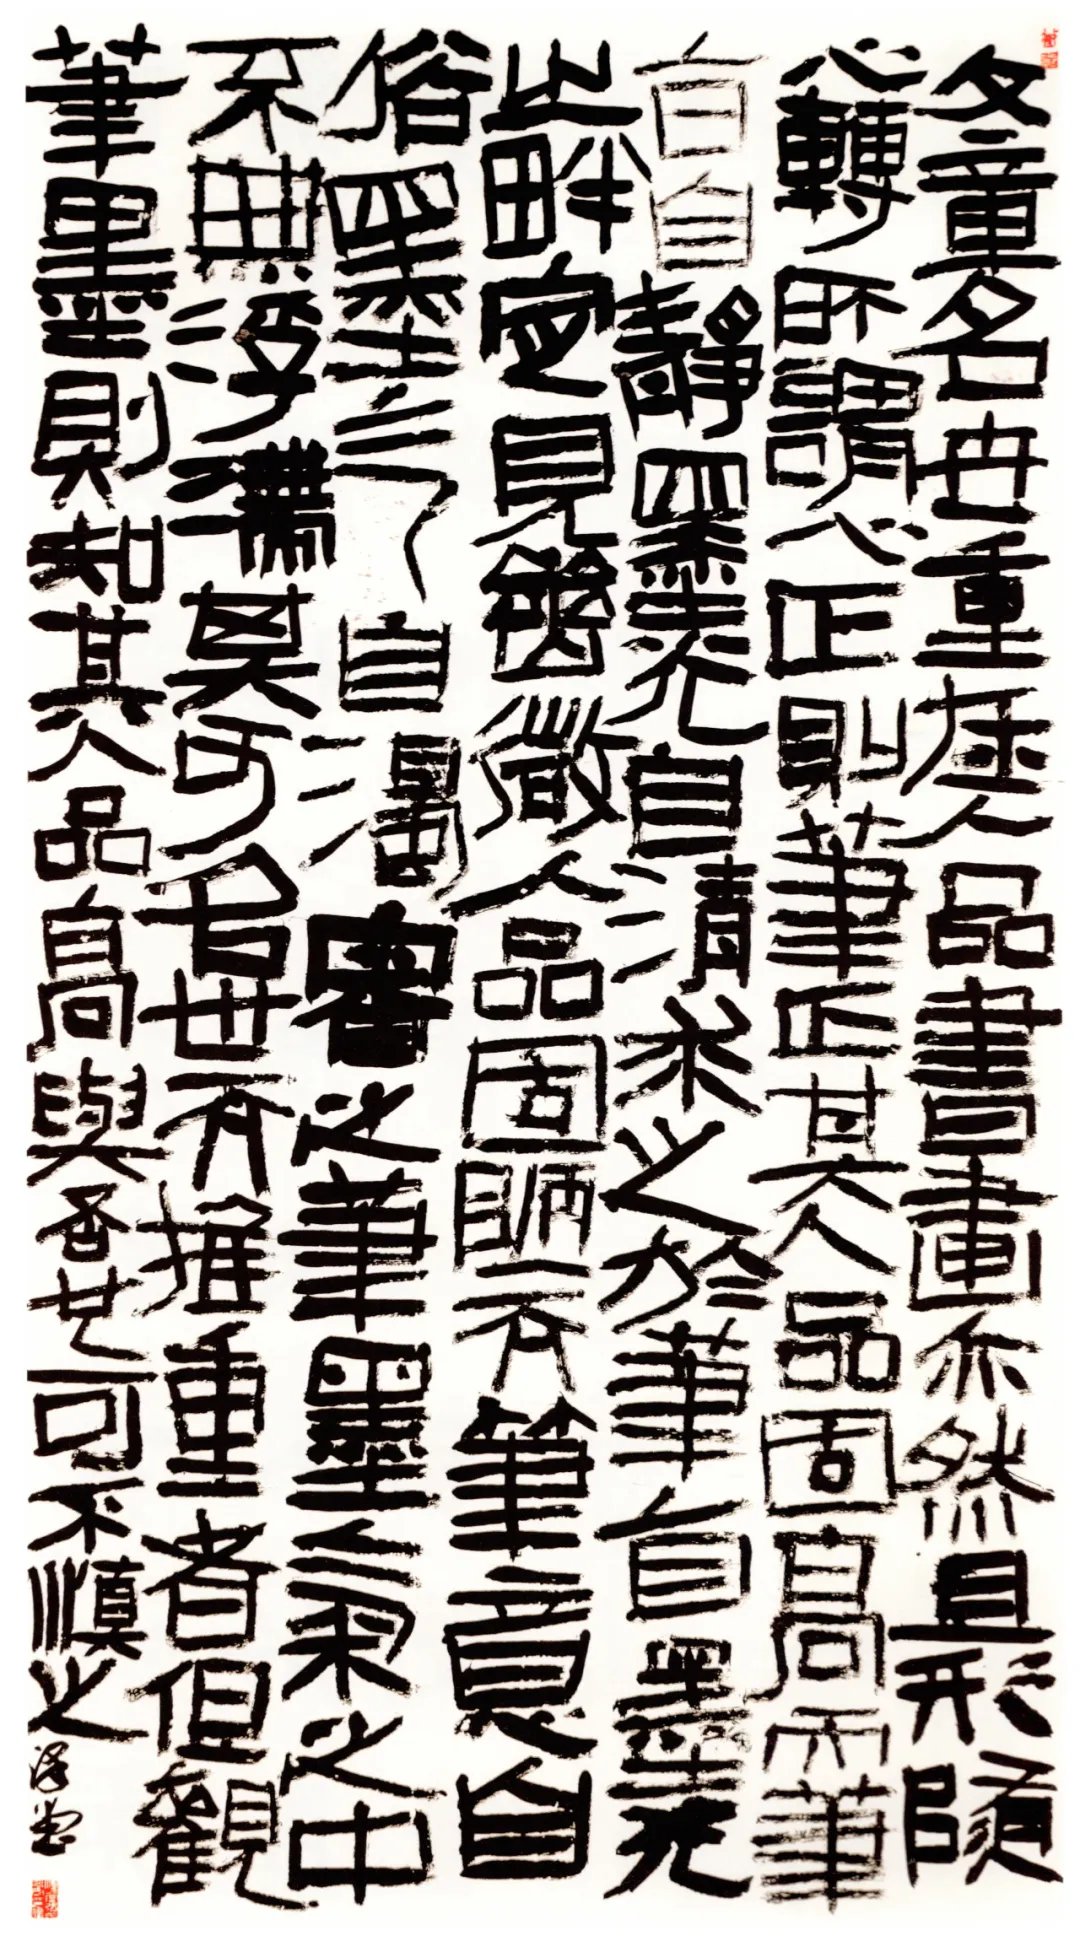 文章名世重在人品書畫亦然且形隨
心轉所謂心正則筆正其人品固高而筆
自自靜墨光自清求之於筆自墨光
之畔定見幾微人品固陋而筆意自
俗墨气自濁審之筆墨氣之中
不無浮滯莫可名世而推重者但觀
筆墨則知其人品高與否也可不慎之